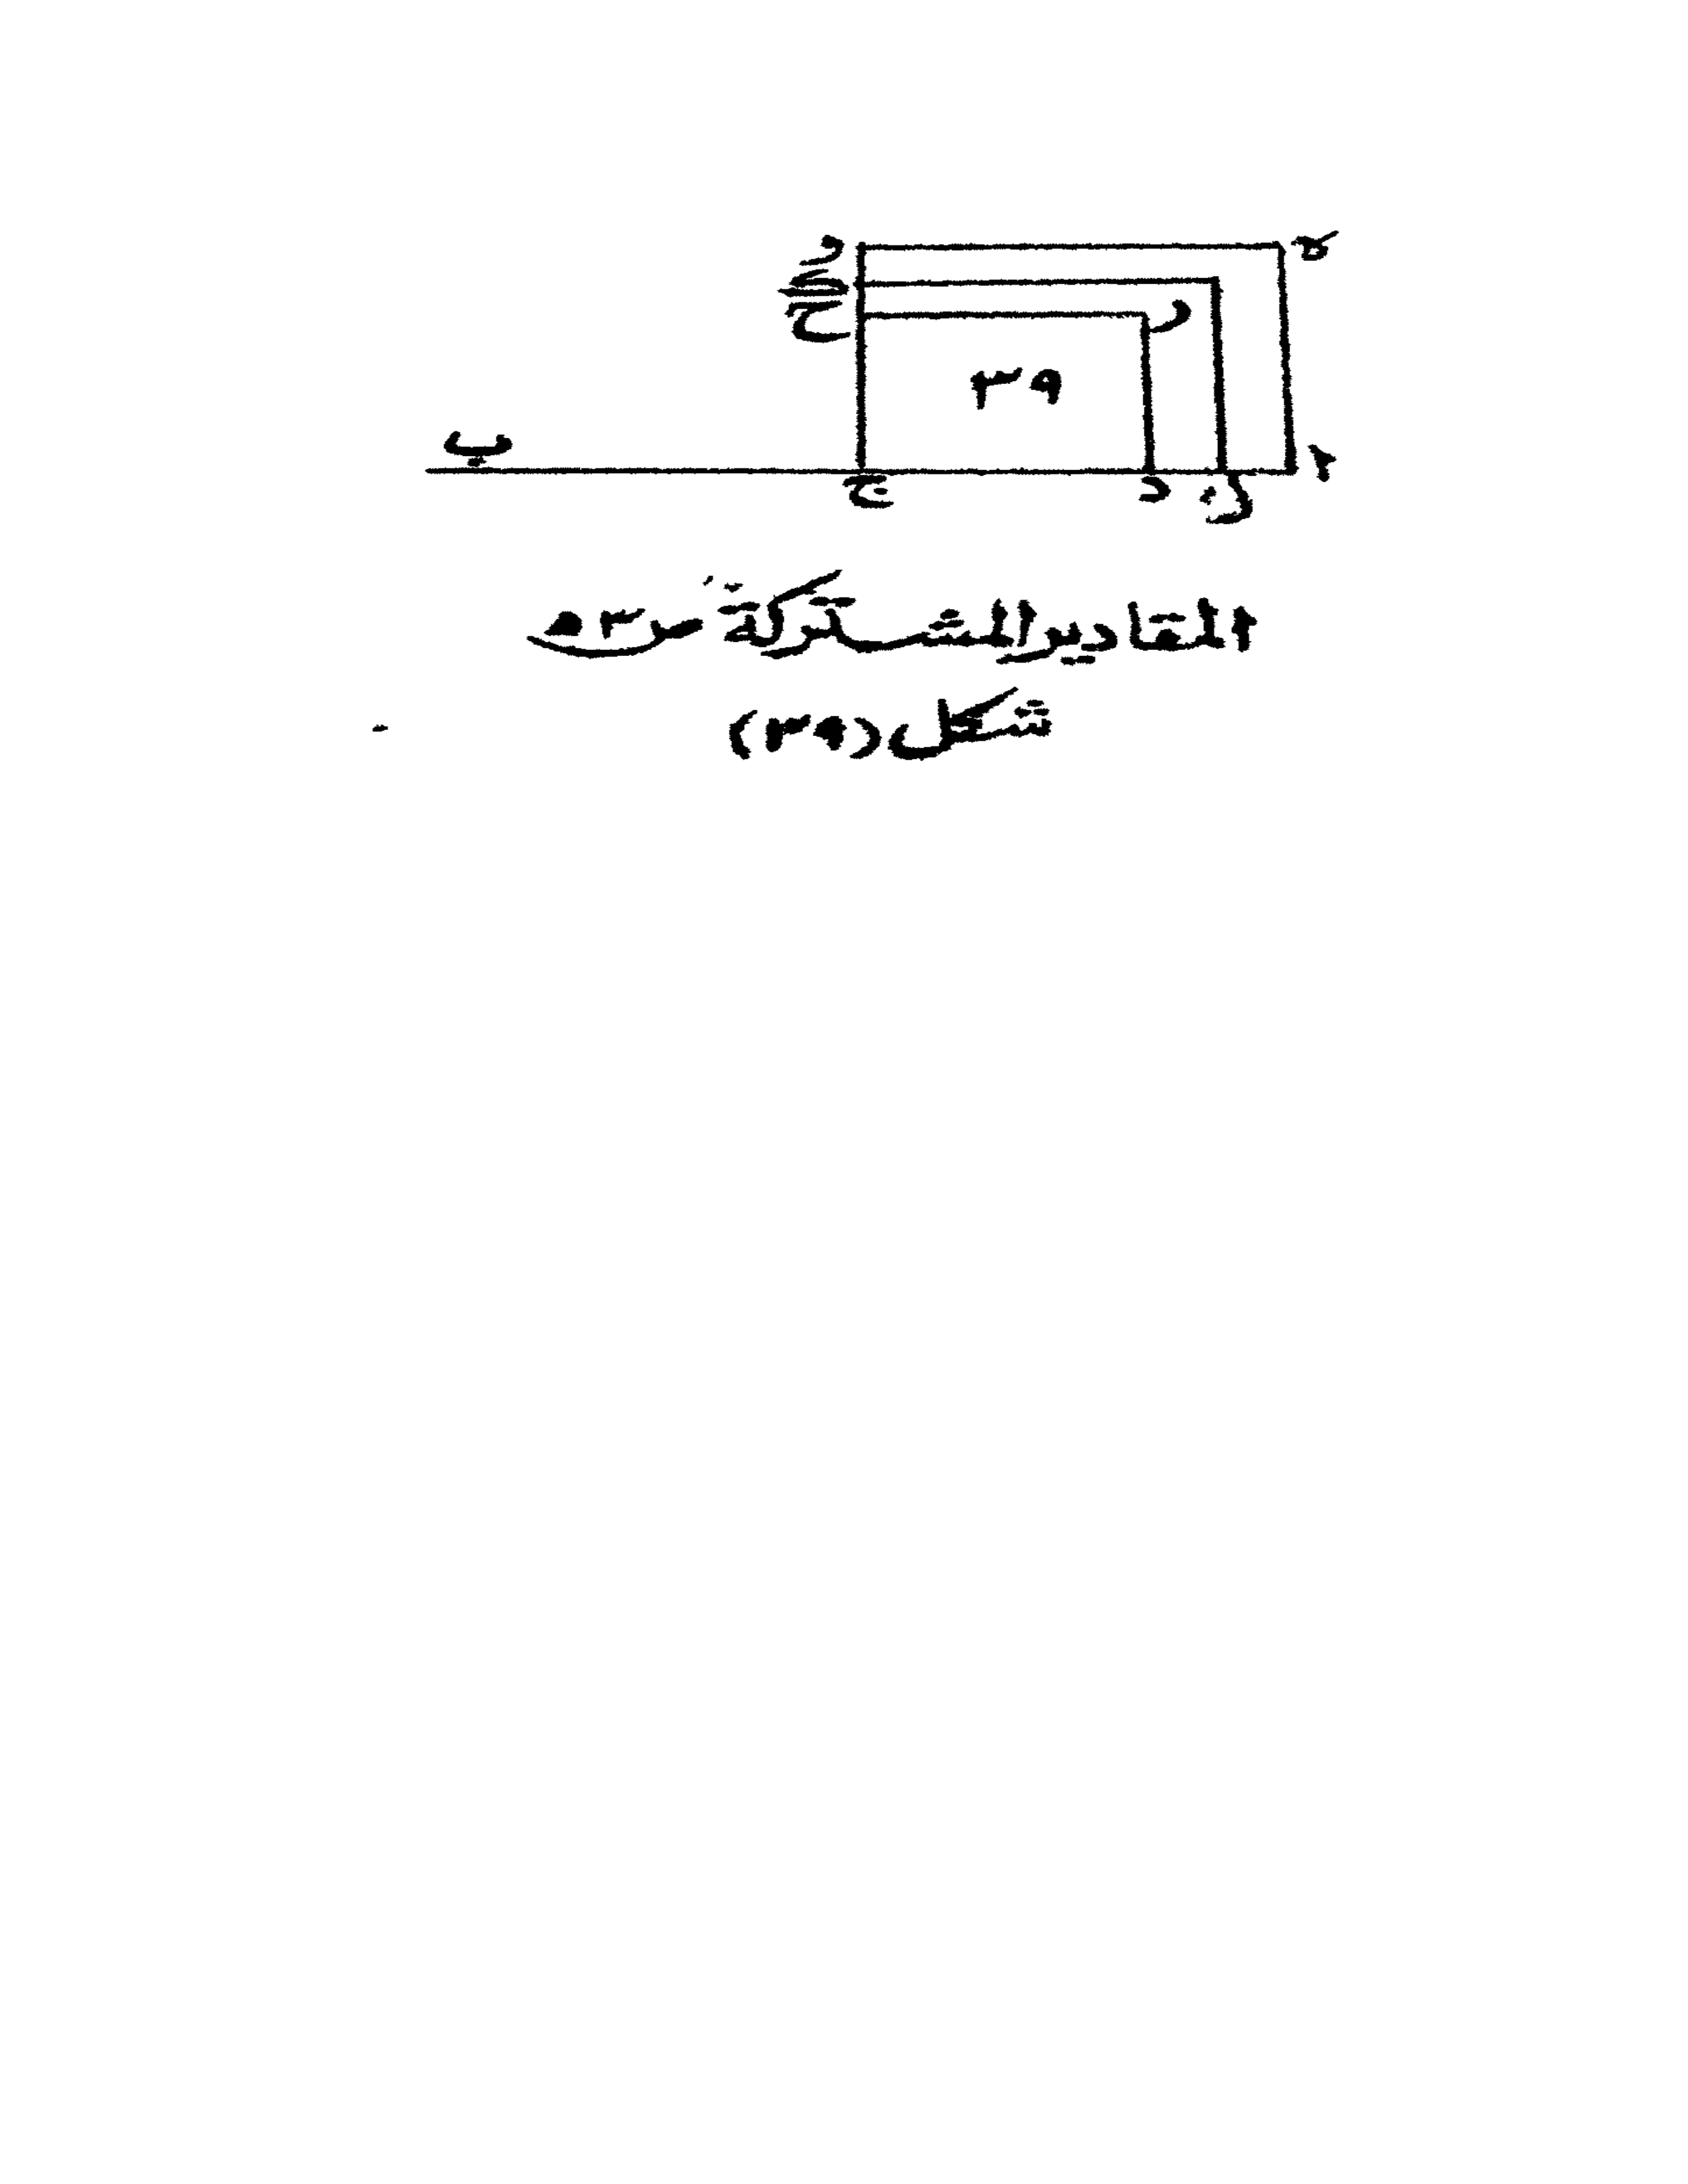 و
ه
ح
ر
٣٩
ب
ا
ج
د
ن
المقاديرالمشتركة ص٣٥
شكل(٣٩)